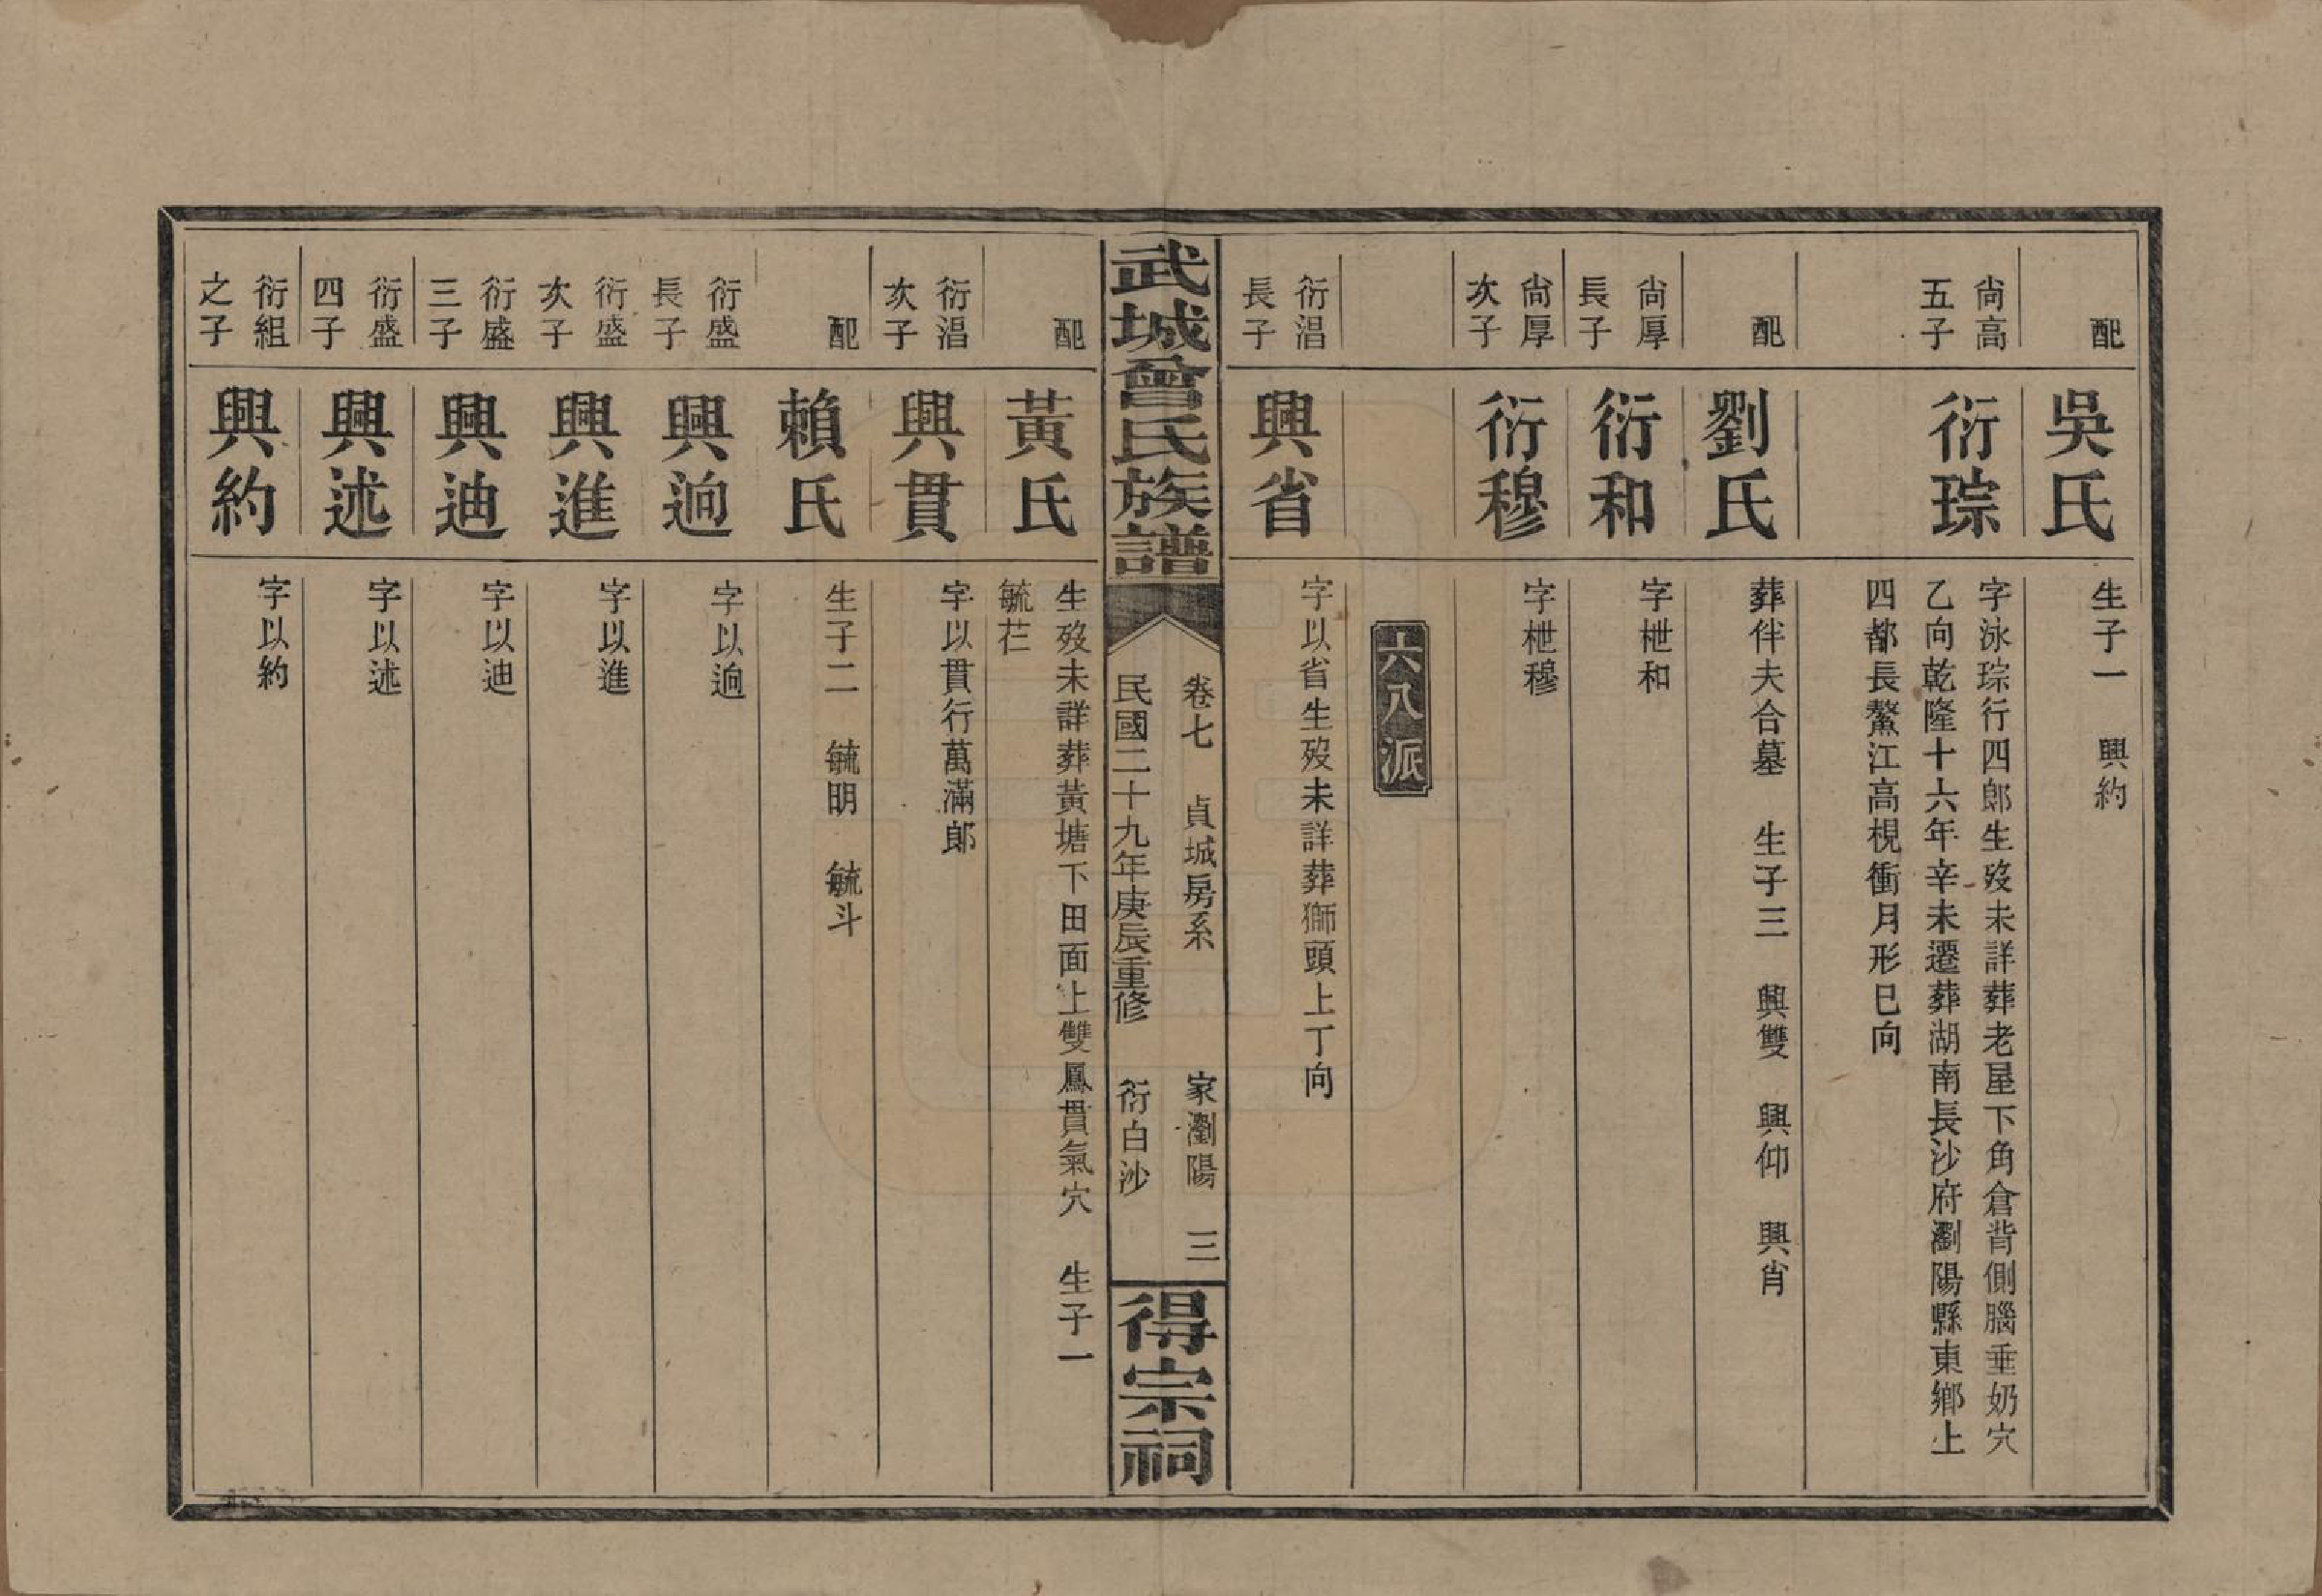 配
吳氏
生子一　興約
尙高
五子
衍琮
字泳琮行四郎生歿未詳葬老屋下角倉背側腦垂奶穴
乙向乾隆十六年辛未遷葬湖南長沙府瀏陽縣東鄉上
四都長鰲江高梘衝月形巳向
配
劉氏
葬伴夫合墓　生子三　興雙　興仰　興肖
尙厚
長子
衍和
字枻和
尙厚
次子
衍穆
字枻穆
六八派
衍淐
長子
興省
字以省生歿未詳葬獅頭上丁向
武城曾氏族譜
卷七　貞城房系　家瀏陽　三
民國二十九年庚辰重修　衍白沙
得宗祠
配
黃氏
生歿未詳葬黃塘下田面上雙鳳貫氣穴　生子一
毓芢
衍淐
次子
興貫
字以貫行萬滿郎
配
賴氏
生子二　毓明　毓斗
衍盛
長子
興逈
字以逈
衍盛
次子
興進
字以進
衍盛
三子
興迪
字以迪
衍盛
四子
興述
字以述
衍組
之子
興約
字以約